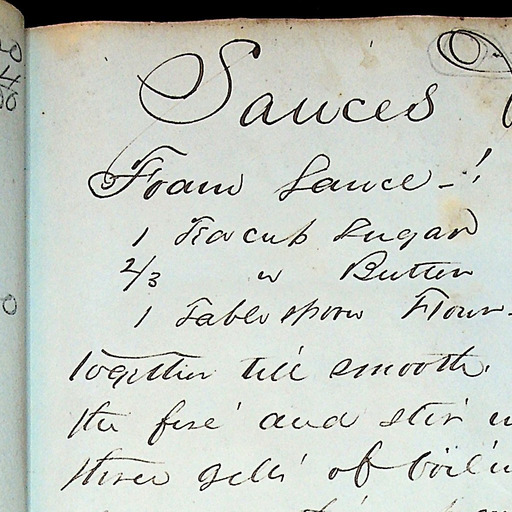 Sauces
Foam Sauce -!
1 Teacup Sugar
2/3 " Butter
1 Tablespoon Flour -
together till smooth.
the fire and stir
three gills of